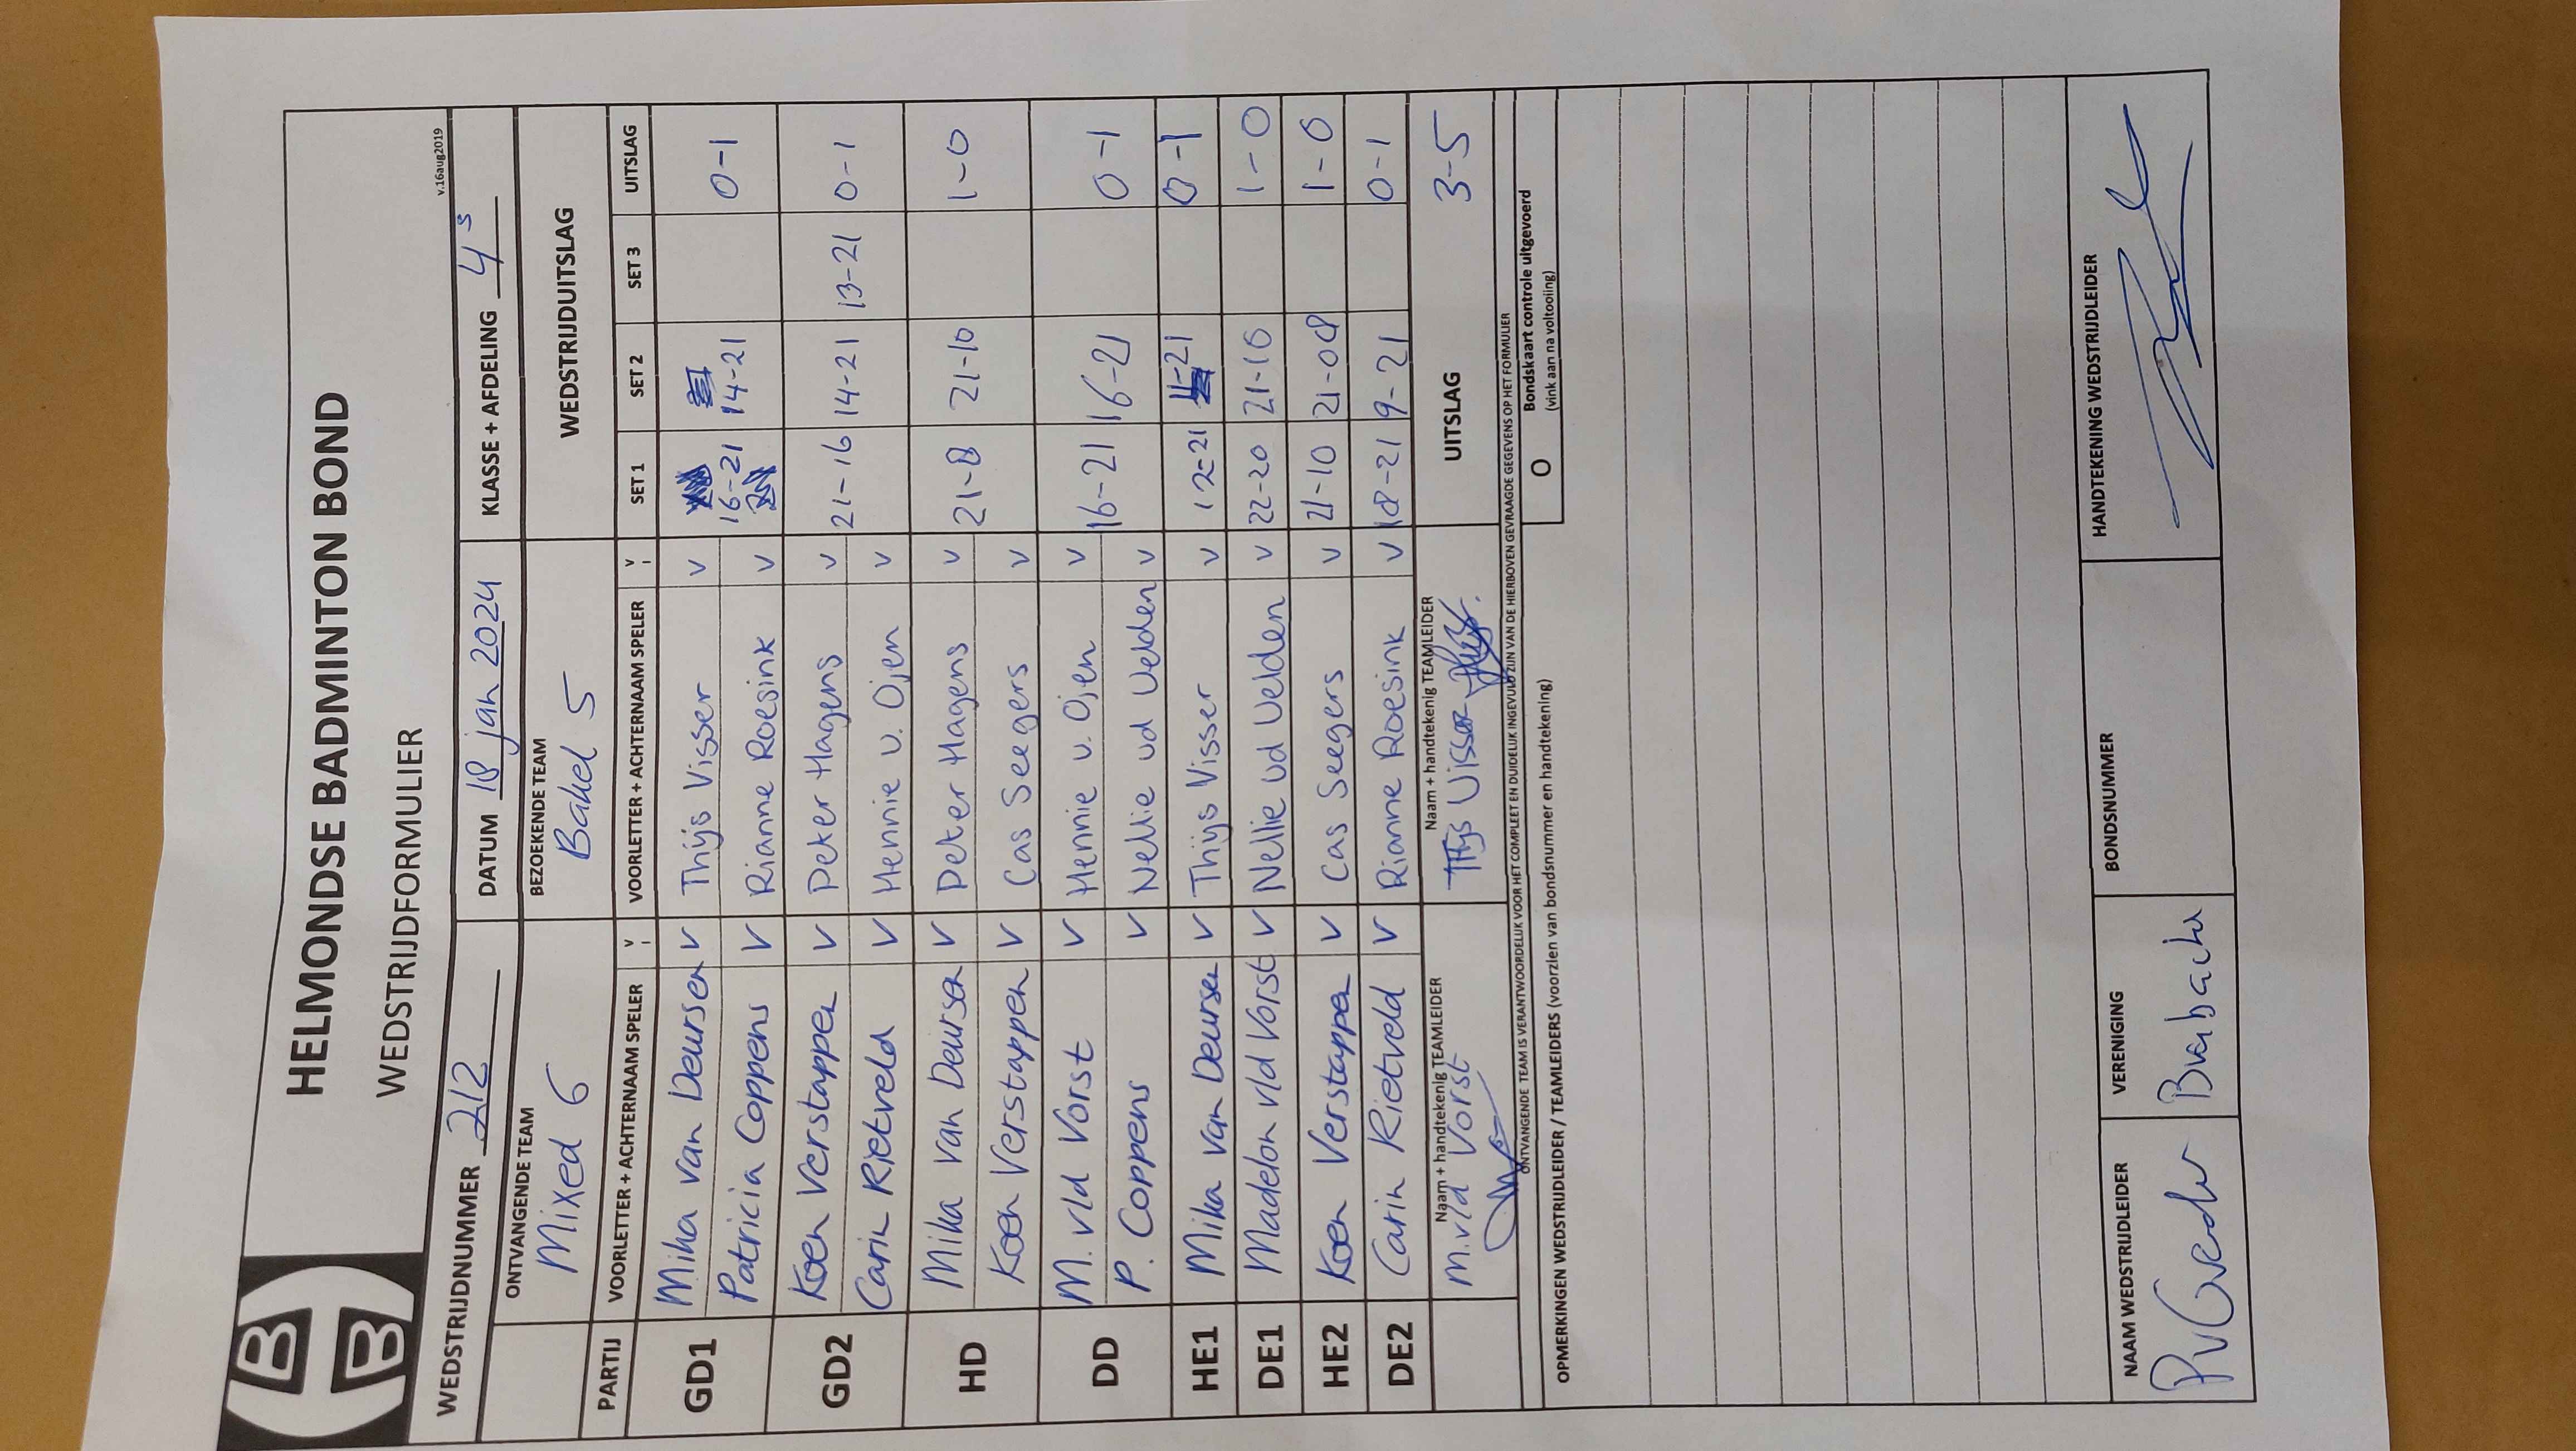 HELMONDSE BADMINTON BOND
WEDSTRIJDFORMULIER
v.16aug2019
WEDSTRIJDNUMMER 212 DATUM 18 jan 2024 KLASSE + AFDELING 4
ONTVANGENDE TEAM BEZOEKENDE TEAM WEDSTRIJDUITSLAG
Mixed 6 Bakel 5
PARTIJ VOORLETTER + ACHTERNAAM SPELER V VOORLETTER + ACHTERNAAM SPELER V SET 1 SET 2 SET 3 UITSLAG
GD1 Mika van Deursen V Thijs Visser V 16-21 14-21 0-1
Patricia Coppens V Rianne Roesink V
GD2 Koen Verstappen V Peter Hagens V 21-16 14-21 13-21 0-1
Carin Rietveld V Hennie v. Ojen V
HD Mika van Deursen V Peter Hagens V 21-8 21-10 1-0
Koen Verstappen V Cas Seegers V
DD M. vld Vorst V Hennie v. Ojen V 16-21 16-21 0-1
P. Coppens V Nellie vd Velden V
HE1 Mika van Deursen V Thijs Visser V 12-21 11-21 0-1
DE1 Madelon vld Vorst V Nellie vd Velden V 22-20 21-16 1-0
HE2 Koen Verstappen V Cas Seegers V 21-10 21-08 1-0
DE2 Carin Rietveld V Rianne Roesink V 18-21 9-21 0-1
Naam + handtekenig TEAMLEIDER Naam + handtekenig TEAMLEIDER UITSLAG 3-5
M. vld Vorst Thijs Visser
ONTVANGENDE TEAM IS VERANTWOORDELIJK VOOR HET COMPLEET EN DUIDELIJK INGEVULD ZIJN VAN DE HIERBOVEN GEVRAAGDE GEGEVENS OP HET FORMULIER
O Bondskaart controle uitgevoerd
(vink aan na voltooiing)
OPMERKINGEN WEDSTRIJDLEIDER / TEAMLEIDERS (voorzien van bondsnummer en handtekening)
NAAM WEDSTRIJDLEIDER VERENIGING BONDSNUMMER HANDTEKENING WEDSTRIJDLEIDER
Brabach